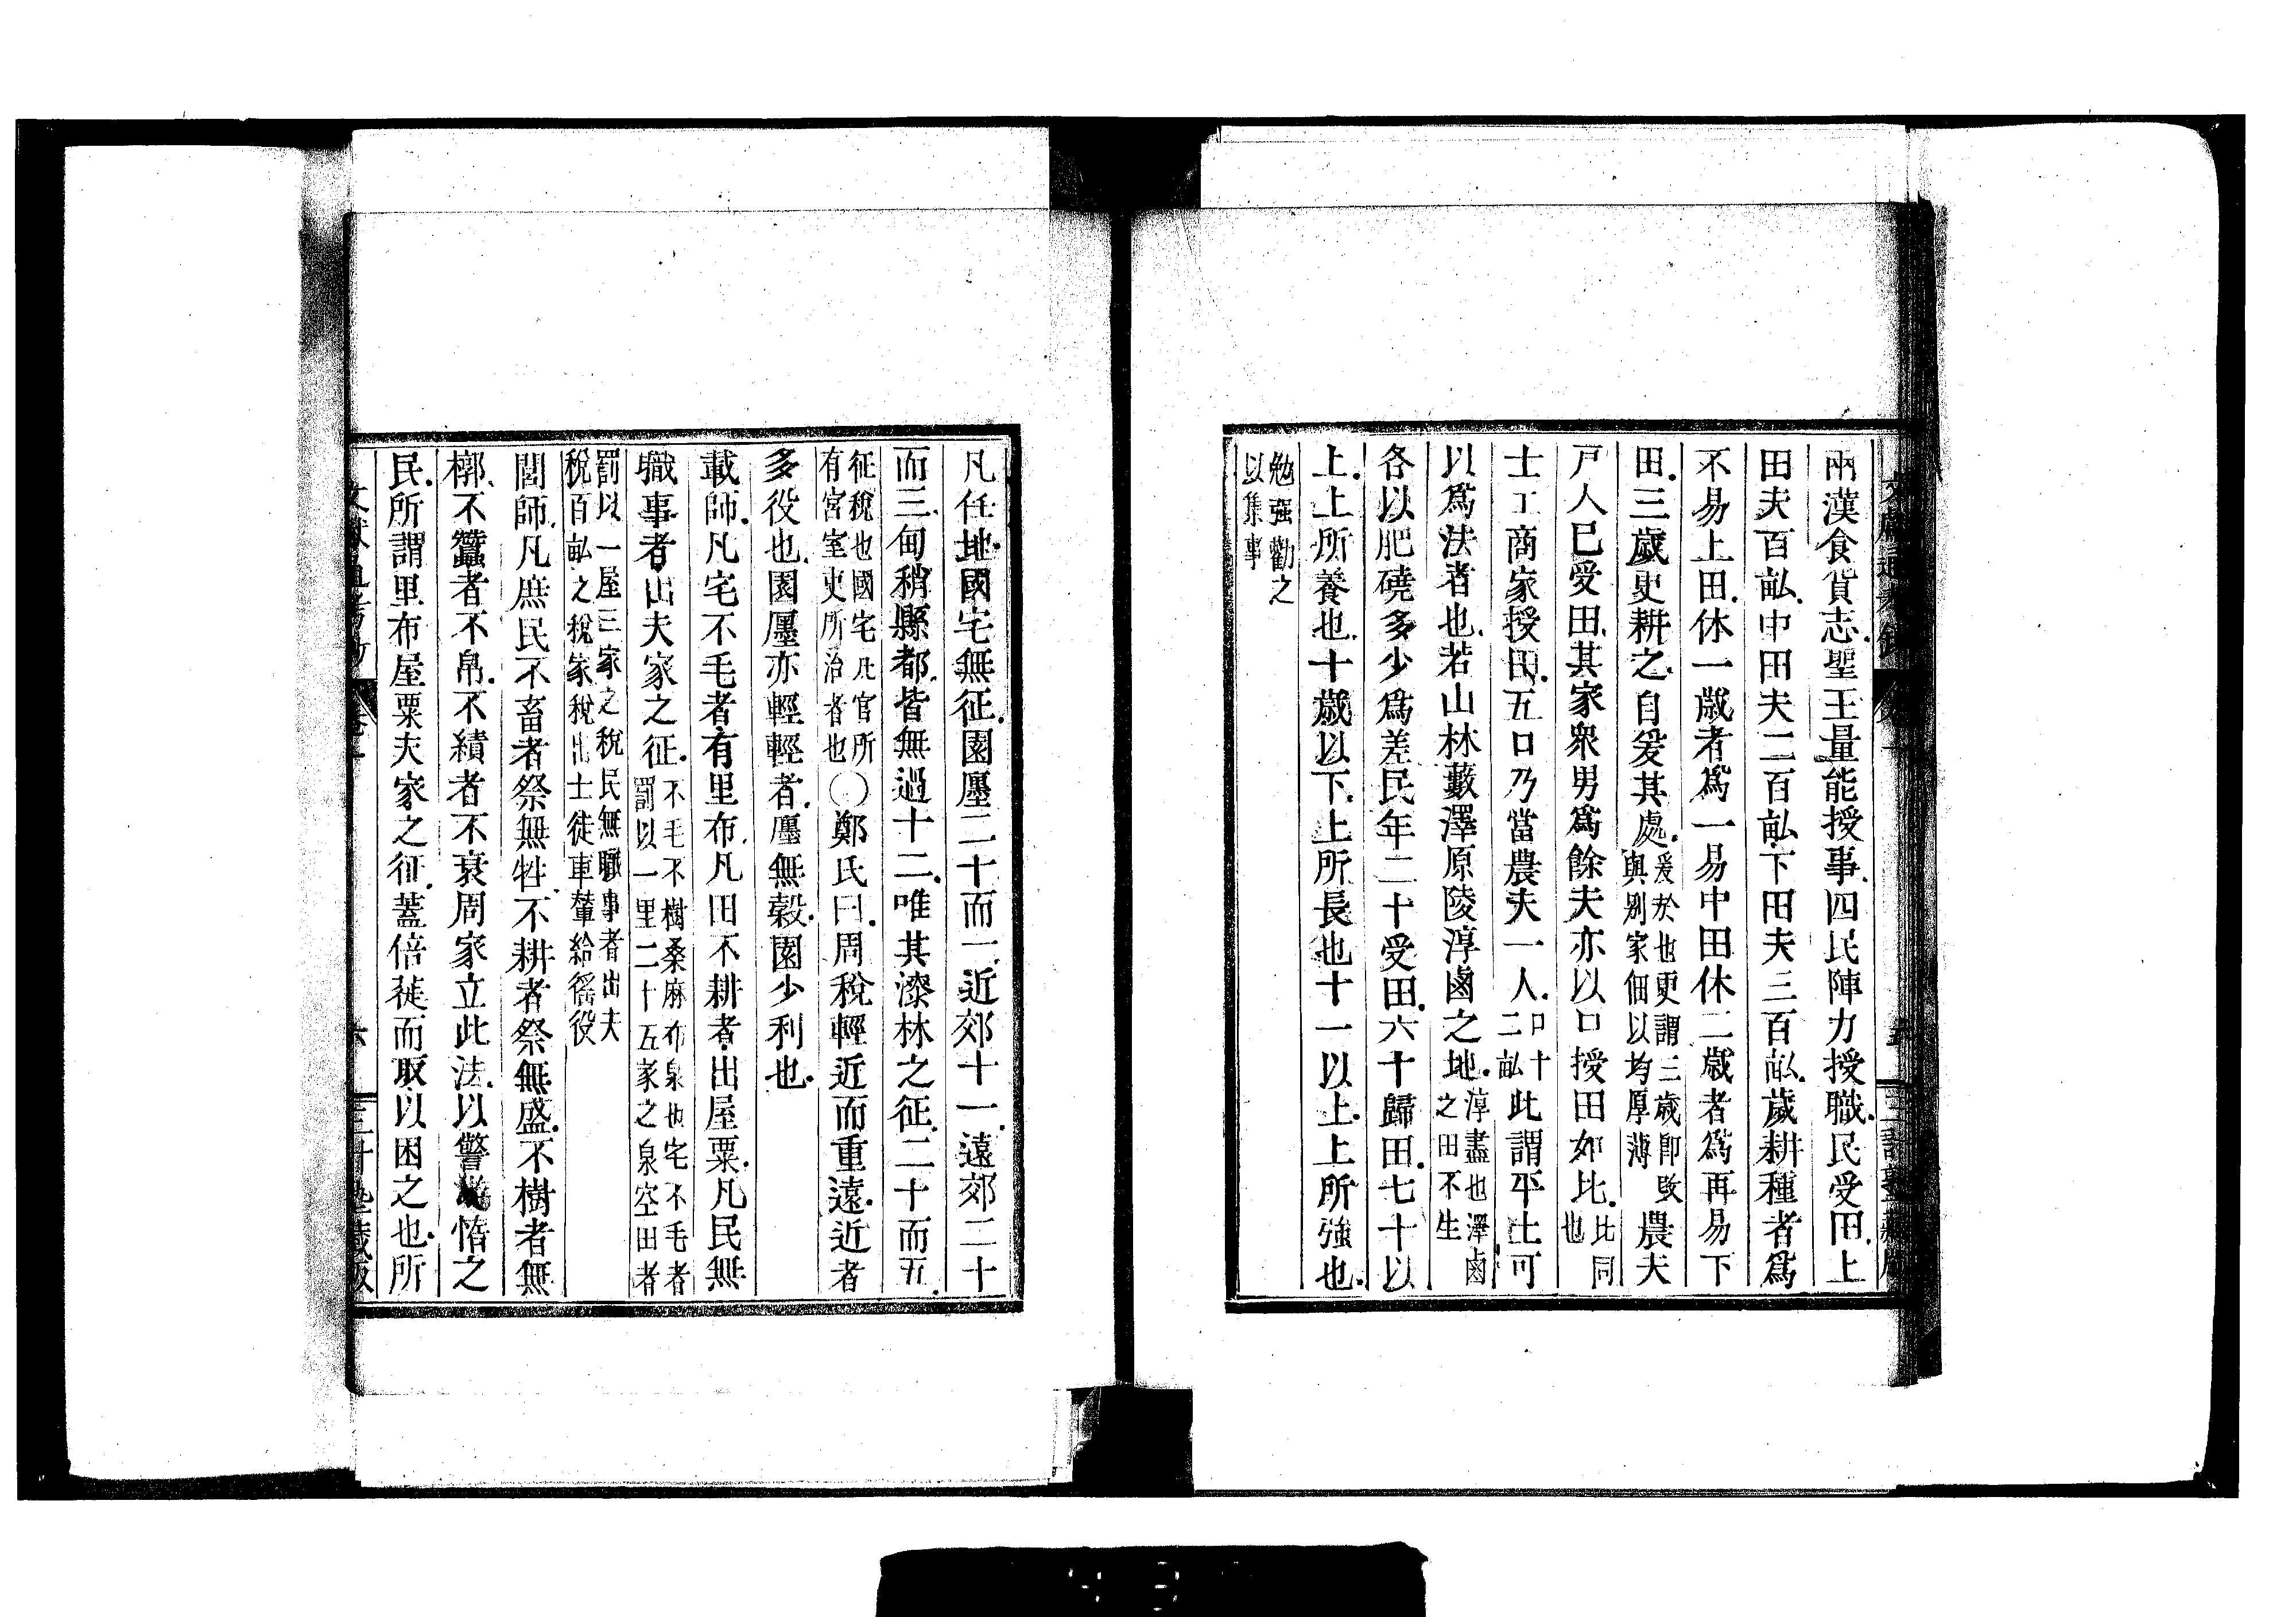 兩漢食貨志聖王量能授事四民陣力授職民受田上
田夫百畝中田夫二百畝下田夫三百畝歲耕種者爲
不易上田休一歲者爲一易中田休二歲者爲再易下
田三歲更耕之自爰其處爰於也更謂三歲即改與別家佃以均厚薄農夫
戸人已受田其家衆男爲餘夫亦以口授田如比比同也
士工商家授田五口乃當農夫一人口十二畝十此謂平土可
以爲法者也若山林藪澤原陵淳鹵之地淳盡也澤鹵之田不生
各以肥磽多少爲差民年二十受田六十歸田七十以
上上所養也十歲以下上所長也十一以上上所強也
勉强勸之以集事
凡任地國宅無征園廛二十而一近郊十一遠郊二十
而三甸稍縣都皆無過十二唯其漆林之征二十而五
征稅也國宅凡官所有宮室吏所治者也〇鄭氏曰周稅輕近而重遠近者
多役也園廛亦輕輕者廛無穀園少利也
載師凡宅不毛者有里布凡田不耕者出屋粟凡民無
職事者出夫家之征不毛不樹桑麻布泉也宅不毛者罰以一里二十五家之泉空田者
罰以一屋三家之稅民無職事者出夫稅百畝之稅家稅出士徒車輦給徭役
閭師凡庶民不畜者祭無牲不耕者祭無盛不樹者無
槨不蠶者不帛不績者不衰周家立此法以警惰之
民所謂里布屋粟夫家之征蓋倍蓰而取以困之也所